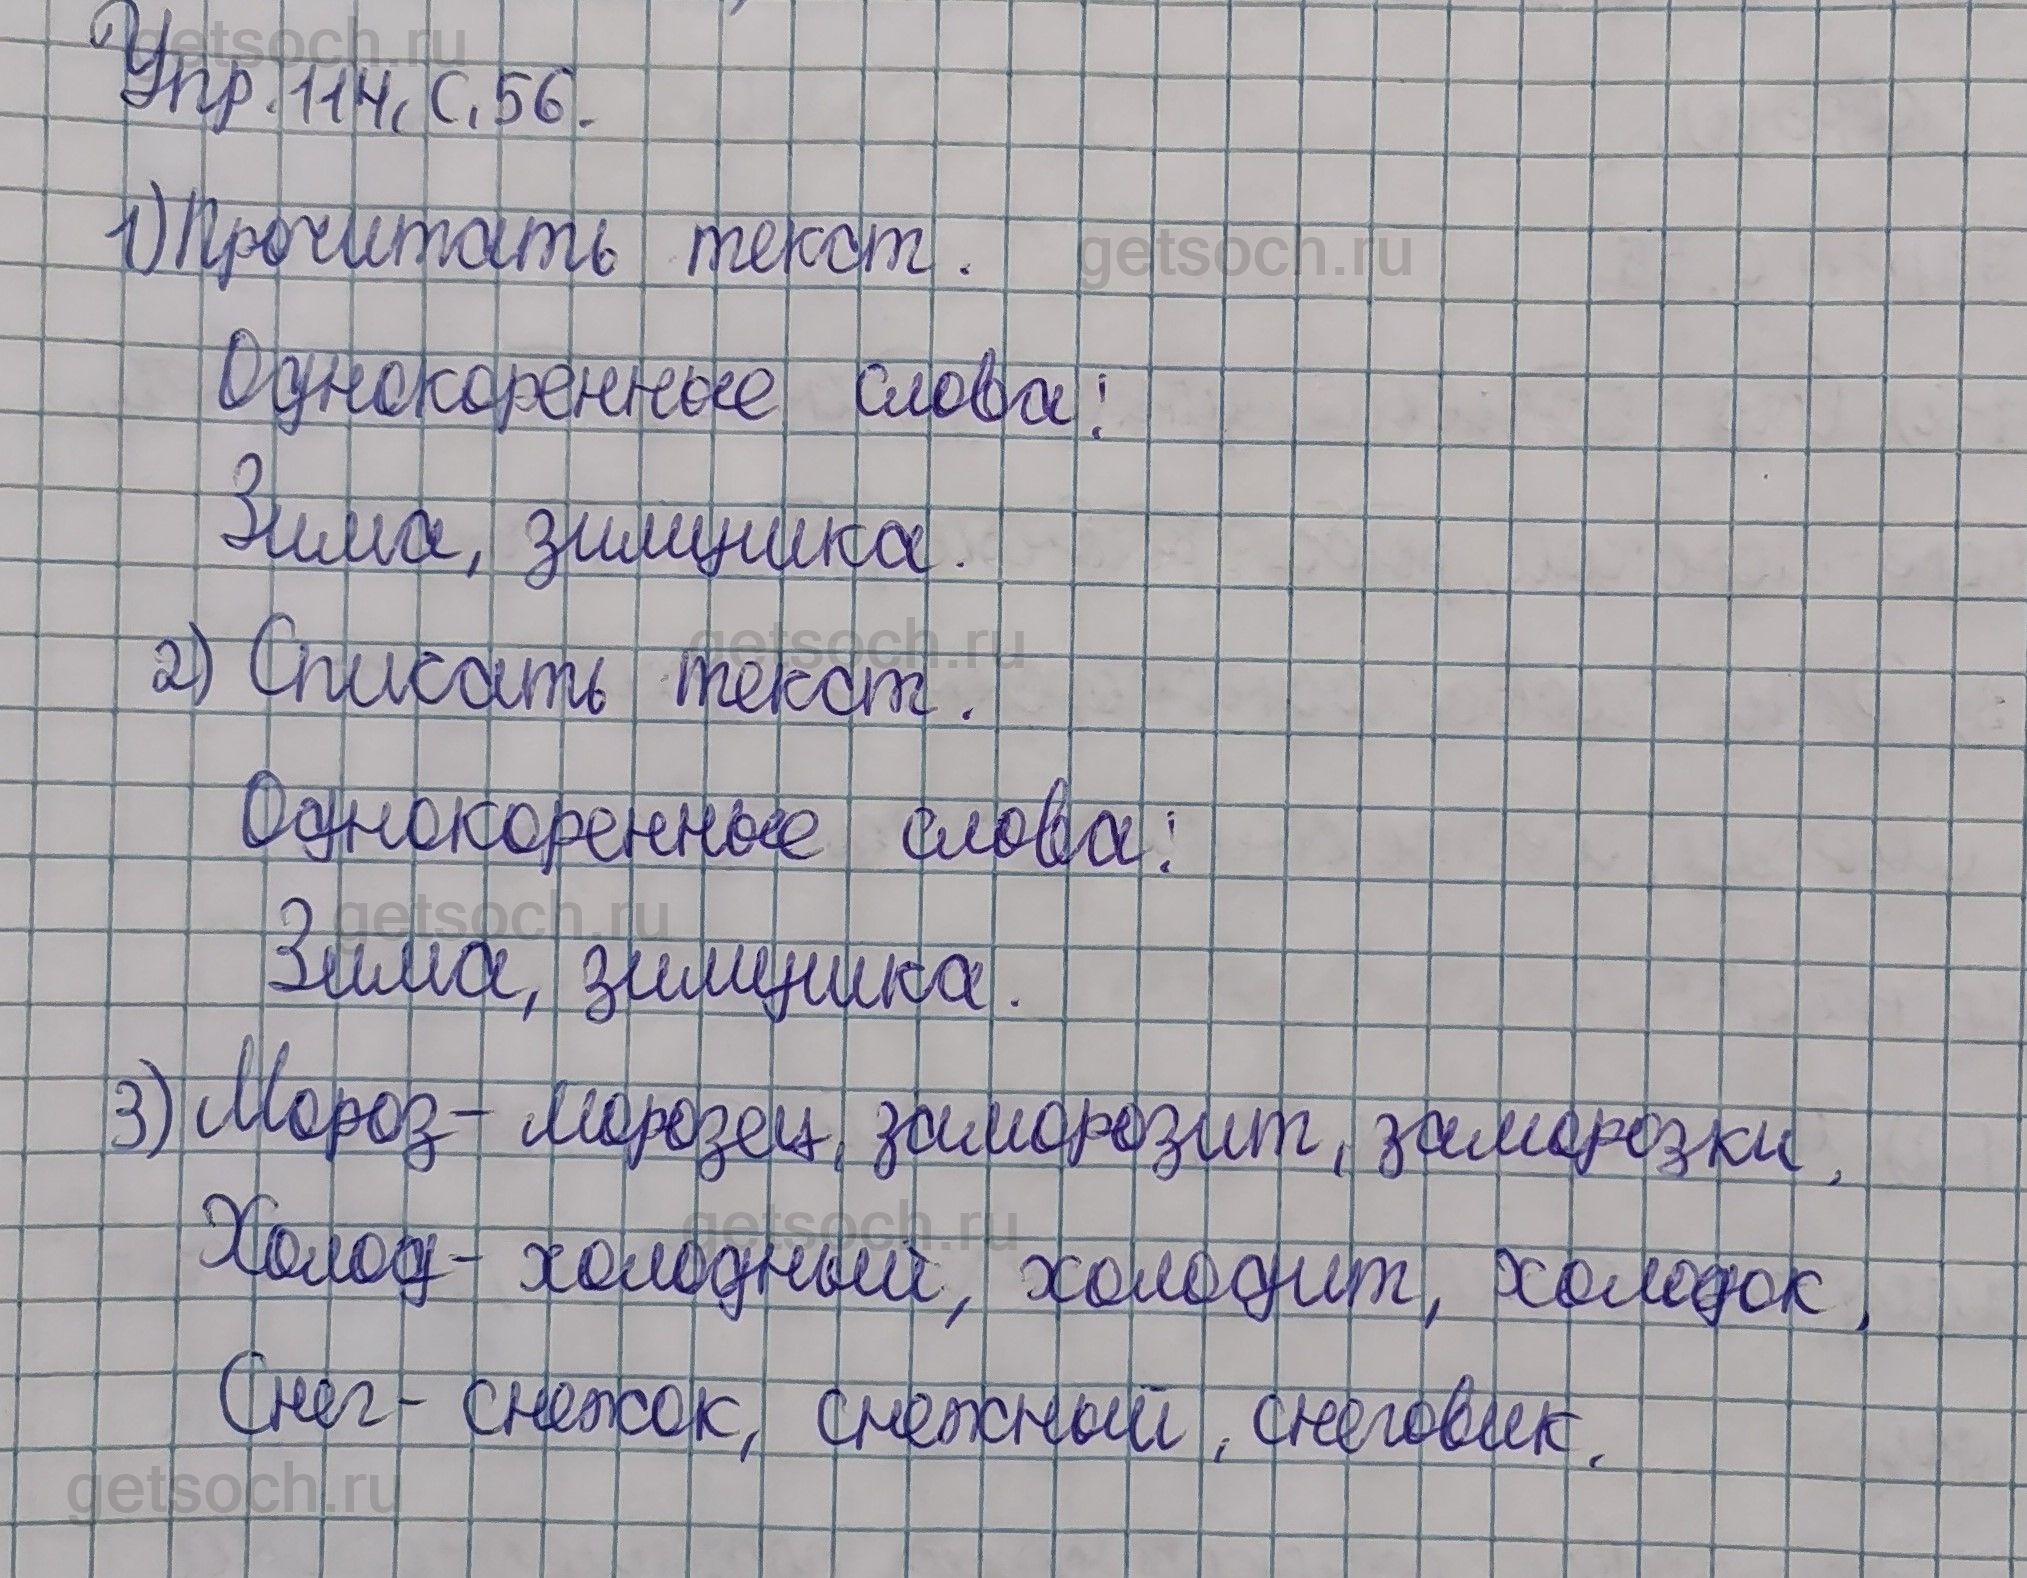 Упр. 114, С. 56.
1) Прочитать текст.
Однокоренные слова:
Зима, зимушка.
2) Списать текст.
Однокоренные слова:
Зима, зимушка.
3) Мороз - морозец, заморозит, заморозки,
Холод - холодный, холодит, холодок,
Снег - снежок, снежный, снеговик.
getsoch.ru
getsoch.ru
getsoch.ru
getsoch.ru
getsoch.ru
getsoch.ru